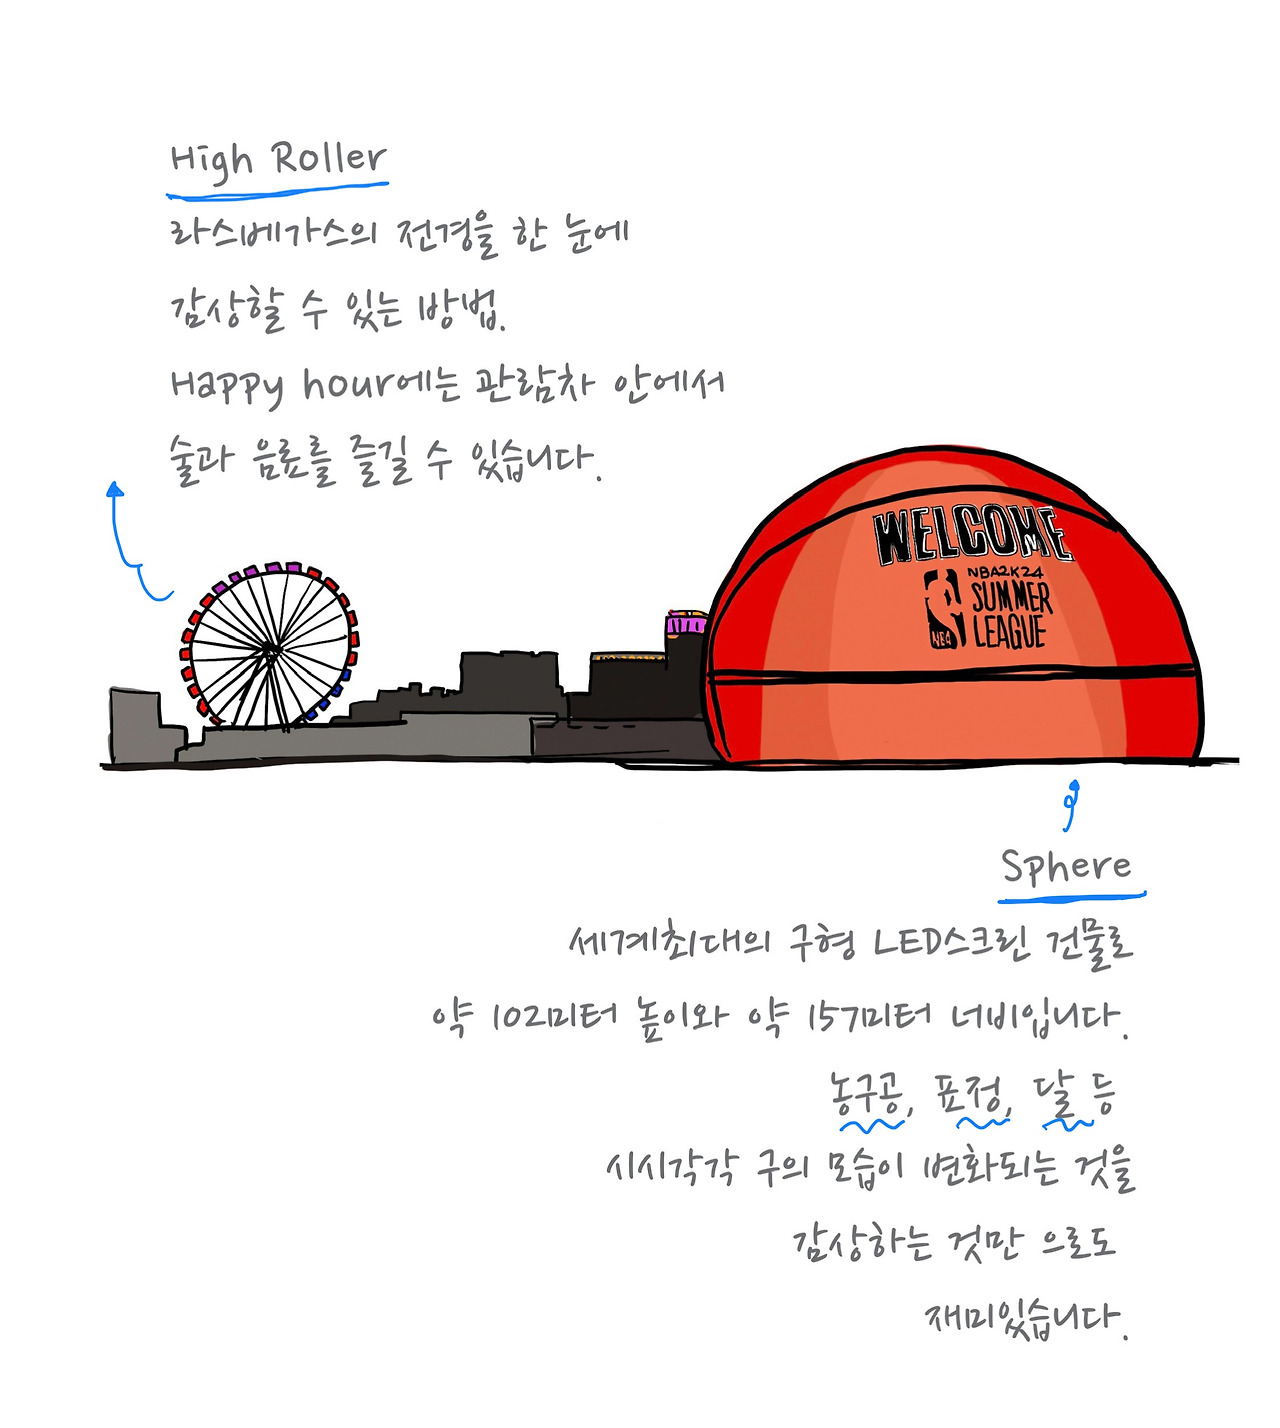 High Roller
라스베가스의 전경을 한 눈에
감상할 수 있는 방법.
Happy hour에는 관람차 안에서
술과 음료를 즐길 수 있습니다.
WELCOME
NBA2K24
SUMMER
LEAGUE
NBA
Sphere
세계최대의 구형 LED스크린 건물로
약 102미터 높이와 약 157미터 너비입니다.
농구공, 표정, 달 등
시시각각 구의 모습이 변화되는 것을
감상하는 것만 으로도
재미있습니다.